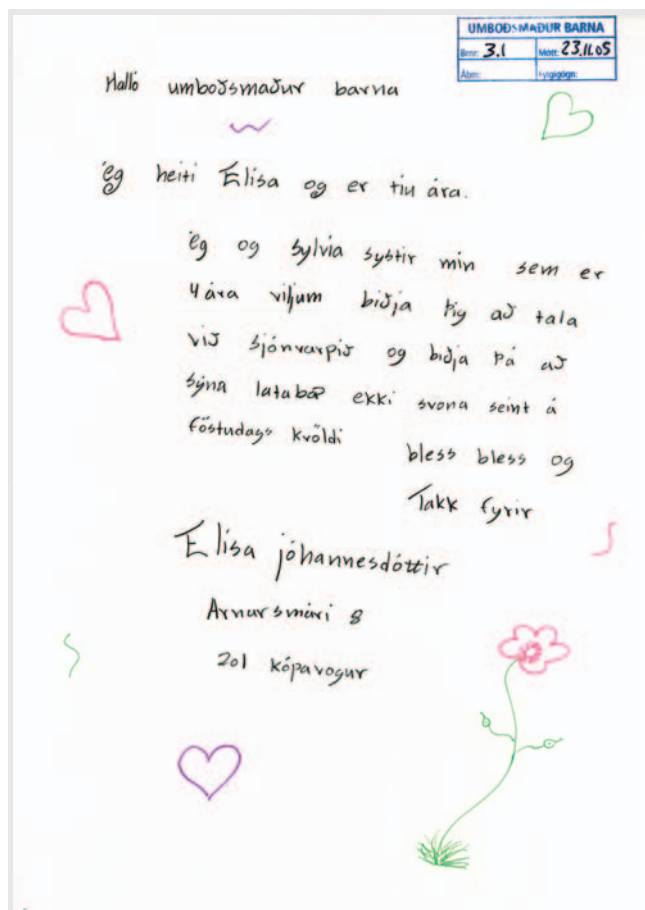 UMBOÐSMAÐUR BARNA
Brnr: 3.1 Mótt: 23.11.05
Ábm: Fylgigögn:
Halló umboðsmaður barna
ég heiti Elísa og er tíu ára.
ég og sylvía systir mín sem er
4 ára viljum biðja þig að tala
við sjónvarpið og biðja þá að
sýna latabæ ekki svona seint á
föstudags kvöldi
bless bless og
Takk fyrir
Elísa jóhannesdóttir
Arnarsmári 8
201 kópavogur